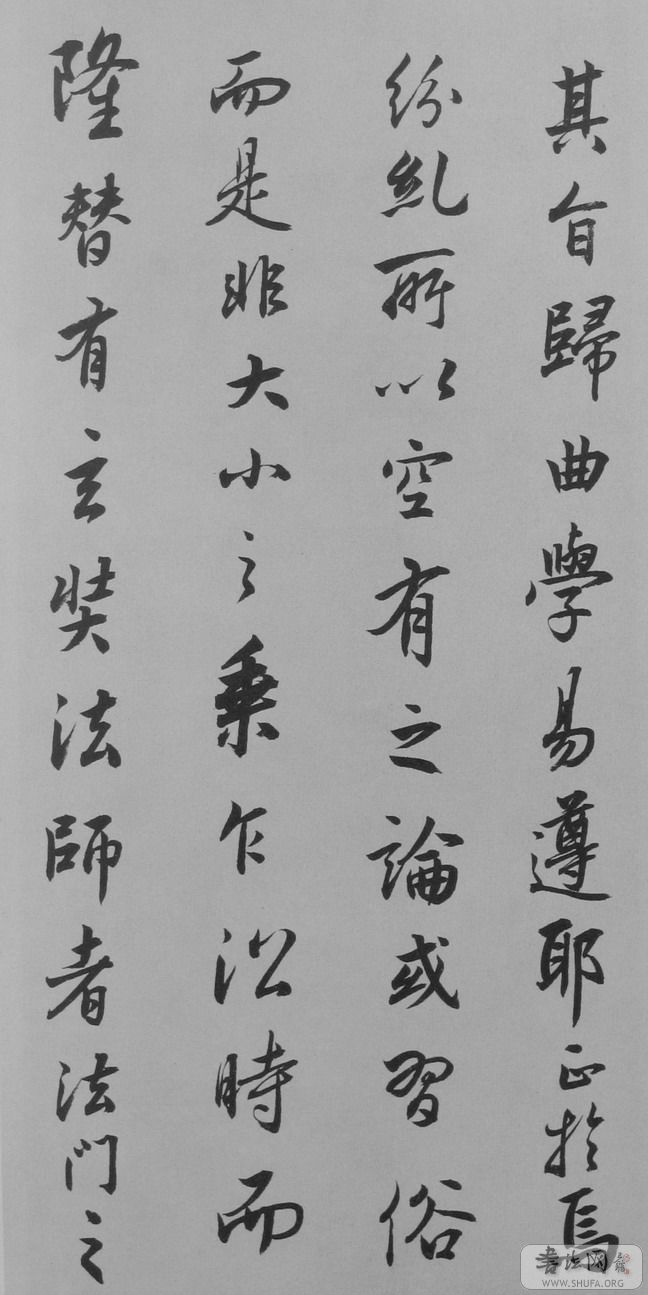 其旨歸曲學易遵耶正於焉
紛糺所以空有之論或習俗
而是非大小之乘乍沿時而
隆替有玄奘法師者法門之
書法网
WWW.SHUFA.ORG